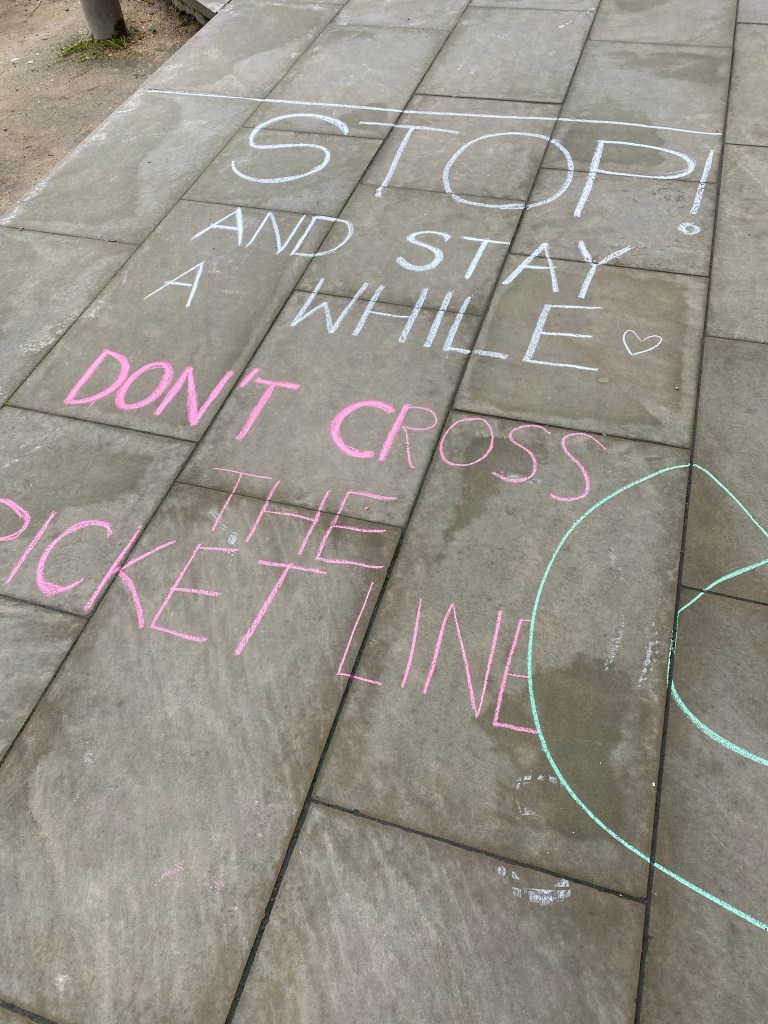 STOP!
AND STAY
A WHILE ♡
DON'T CROSS
THE
PICKET LINE